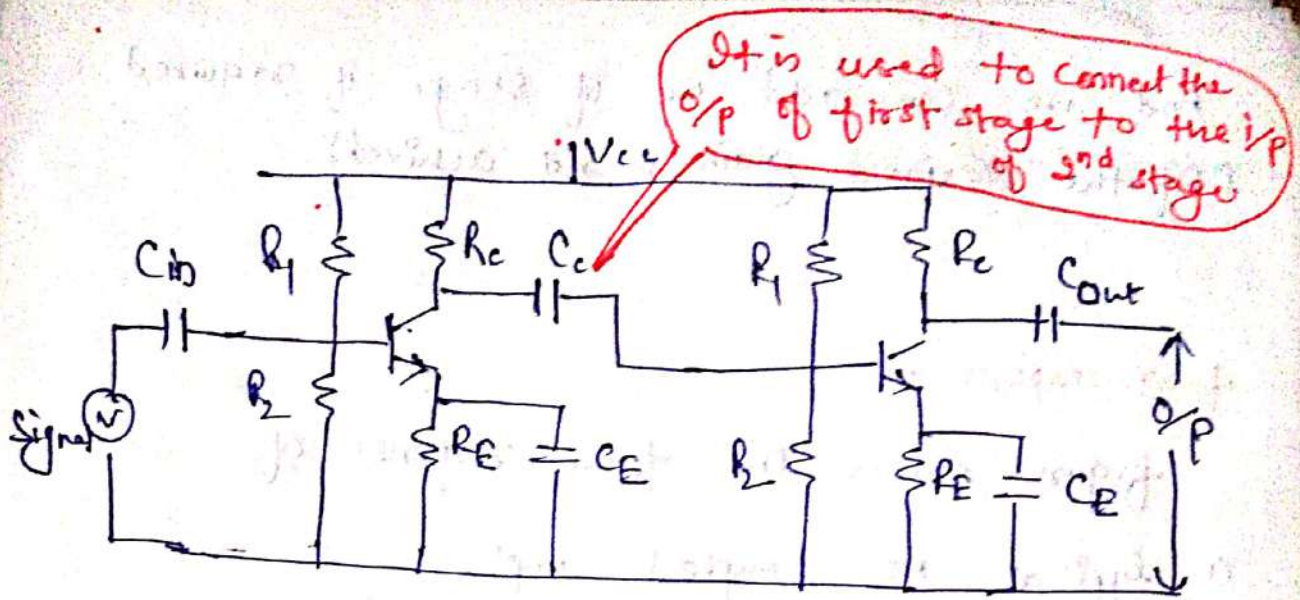 It is used to connect the
O/p of first stage to the i/p
of 2nd stage
Vcc
Cin
R1
Rc
Cc
R1
Rc
Cout
Signal
R2
RE
CE
R2
RE
CE
O/p